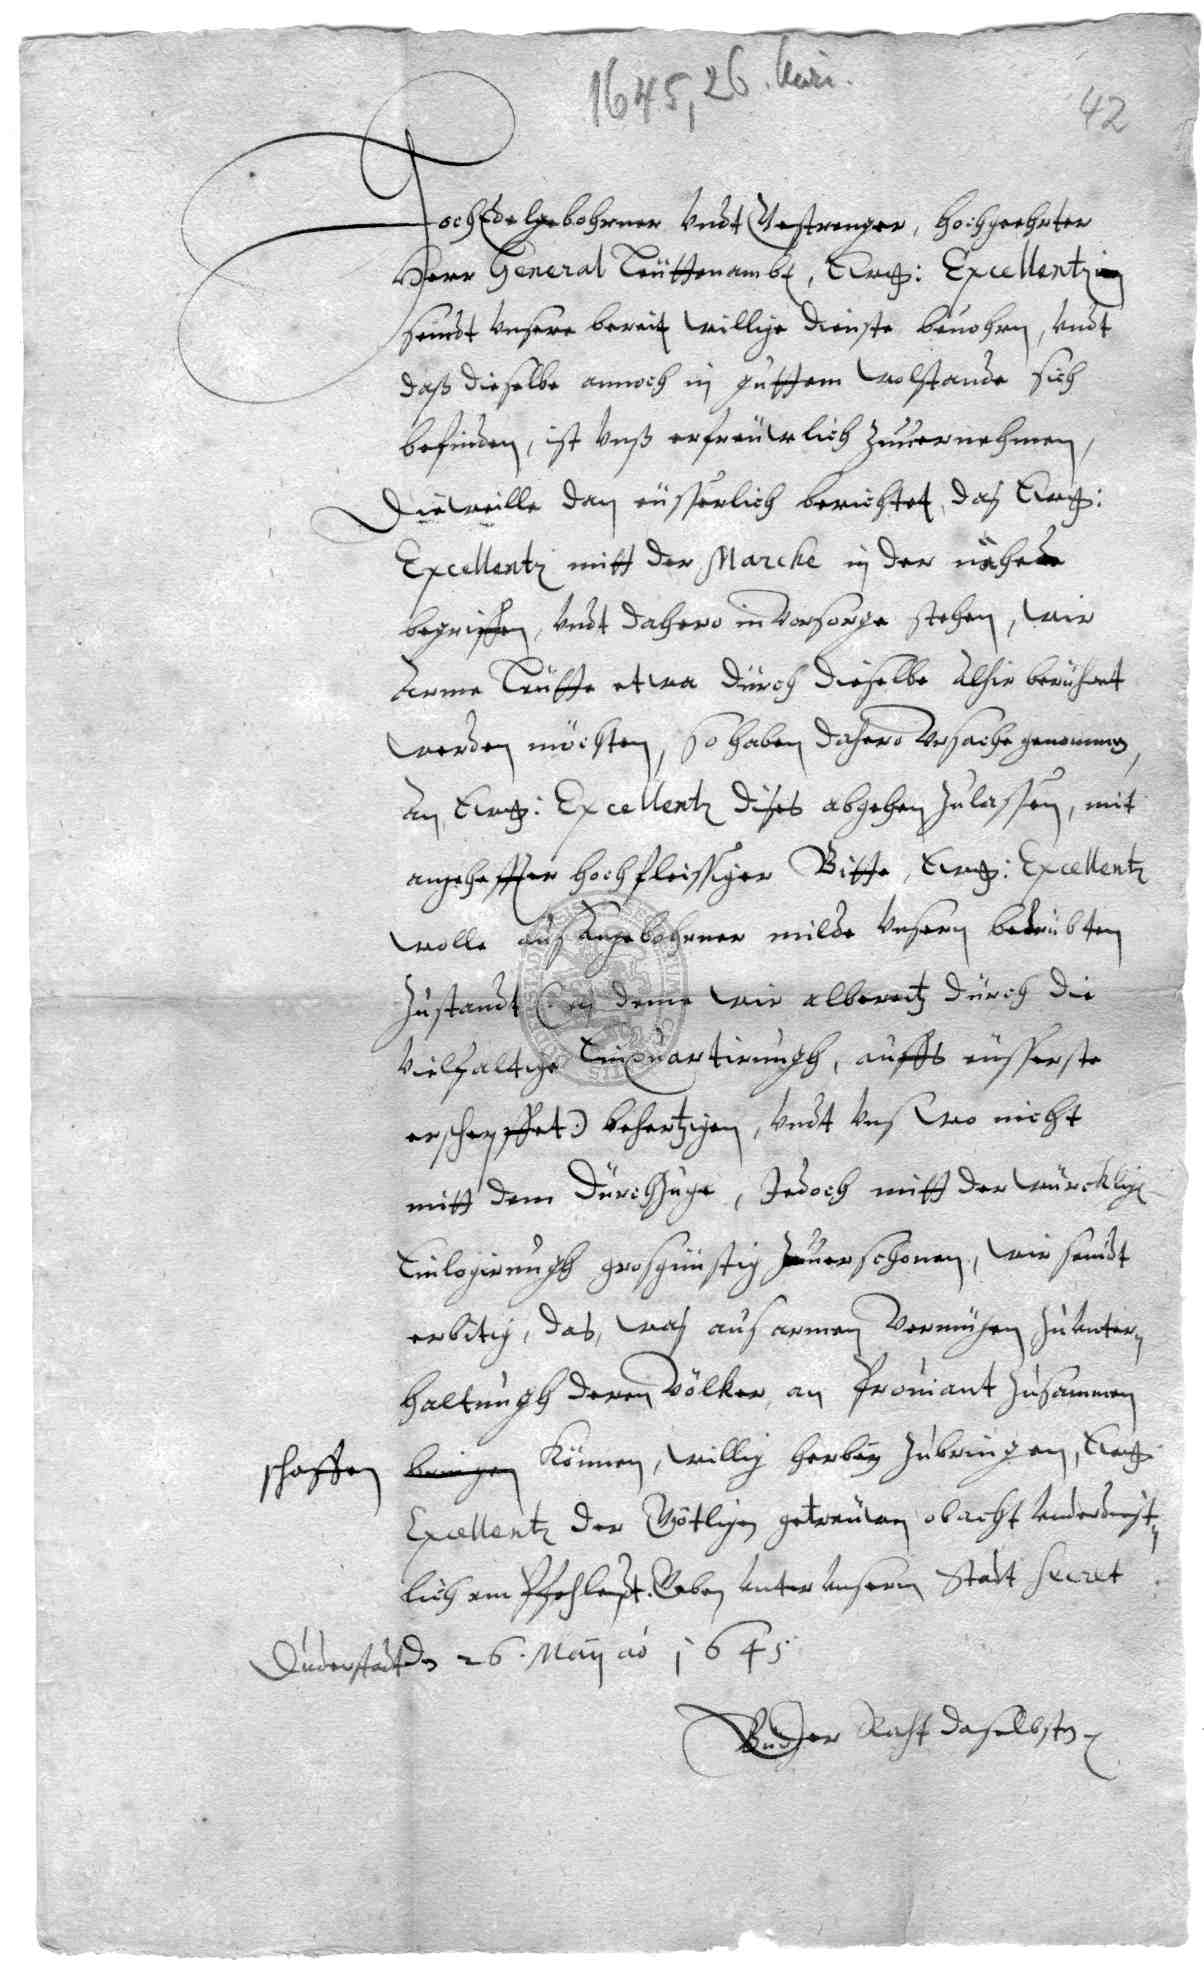 1645, 26. Mai.
42
HochEdelgebohrner Undt Gestrenger, hochgeehrter
Herr General Leüttenambt, Ewg: Excellentz
seindt Unsere bereit willige dienste beuohrn, Undt
daß dieselbe annoch in guttem wolstande sich
befinden, ist Unß erfreüwlich zuuernehmen,
Dieweille dan eüsserlich berichtet, das Ewg:
Excellentz mitt der Marche in der nähede
begriffen, Undt dahero in Vorsorge stehen, wir
Arme Leütte etwa dürch dieselbe Alhir berühret
werden möchten, so haben dahero Ursache genommen,
An Ewg: Excellentz dises abgehen zulassen, mit
angehaffter hochfleissiger Bitte, Ewg: Excellentz
wolle aus Angebohrner milde Unsern bedrübten
Zustandt (: in deme wir albereitz dürch die
Vielfaltige Einquartirungh, auffs eüsserste
erschepffet:) behertzigen, Undt Uns wo nicht
mitt dem Dürchzuge, Jedoch mitt der würcklig
Einlogirungh grosgünstig zuuerschonen, wir seindt
erbötig, das, was aus armen Vermügen zu Unter,,
haltungh deren Völker, an Prouiant zusammen
schaffen bringen können, willig herbey zubringen, Ewg
Excellentz der Götligen getreüwen obacht Underdinst,,
lich em Pfehlendt. Geben Unter Unserm Stadt Secret
Duderstadt d 26. Maij ao 1645
Bür der Raht daselbsten